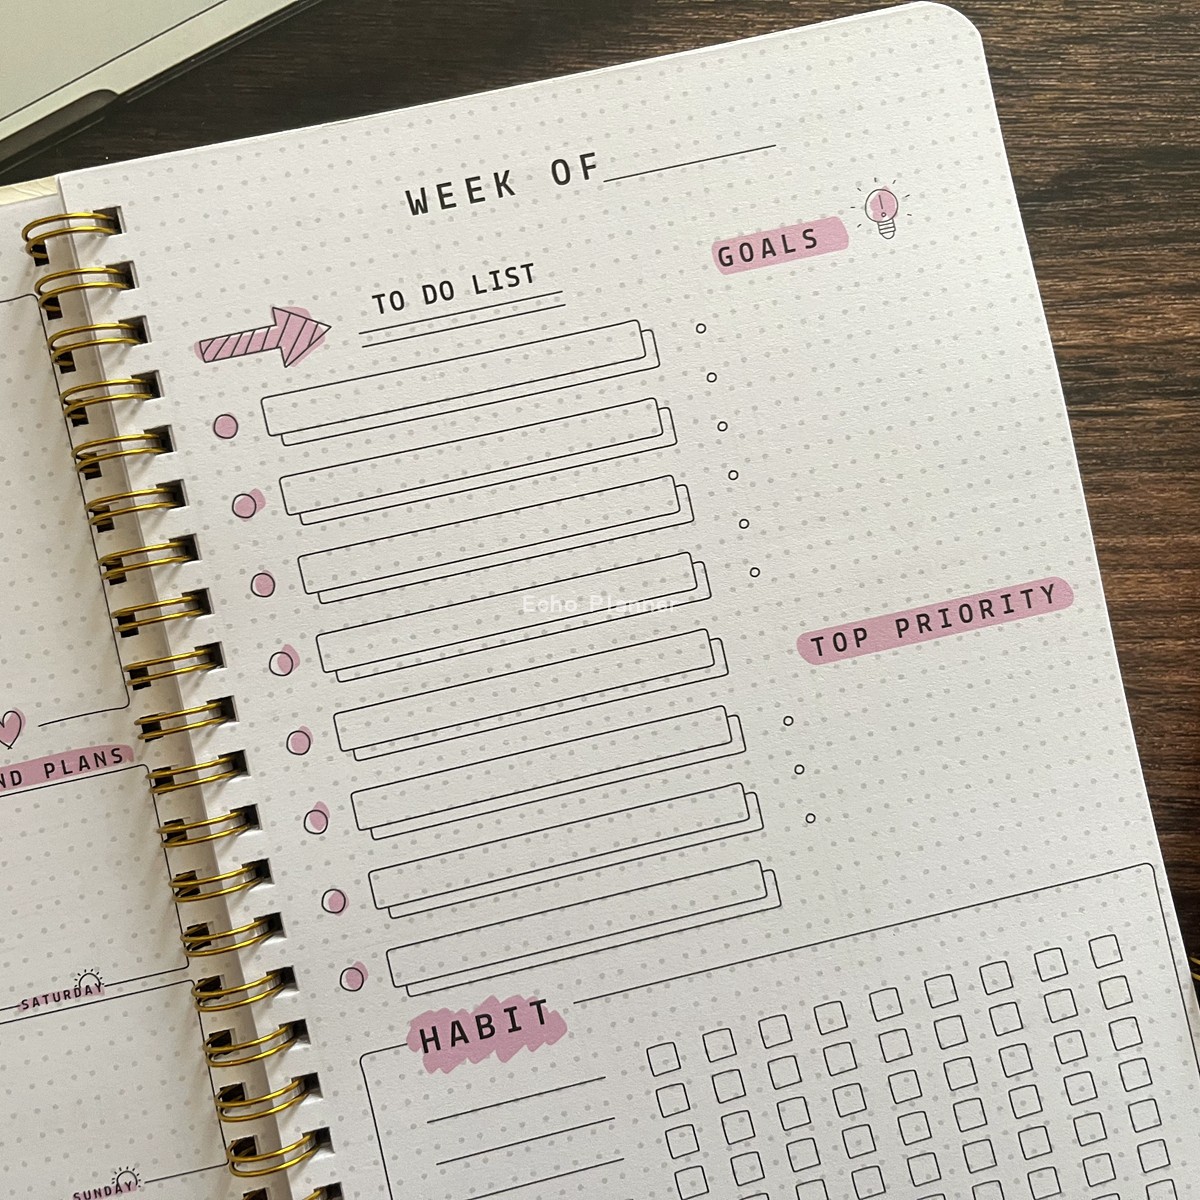 WEEK OF
GOALS
TO DO LIST
Echo Planner
TOP PRIORITY
PLANS
SATURDAY
HABIT
SUNDAY